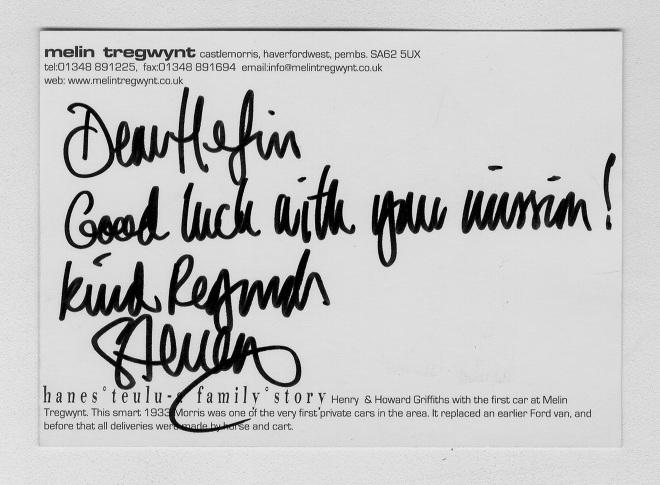 melin tregwynt castlemorris, haverfordwest, pembs. SA62 5UX
tel:01348 891225, fax:01348 891694 email:info@melintregwynt.co.uk
web: www.melintregwynt.co.uk
Dear Hefin
Good luck with your mission!
Kind Regards
hanes°teulu-a family°story Henry & Howard Griffiths with the first car at Melin
Tregwynt. This smart 1933 Morris was one of the very first private cars in the area. It replaced an earlier Ford van, and
before that all deliveries were made by horse and cart.